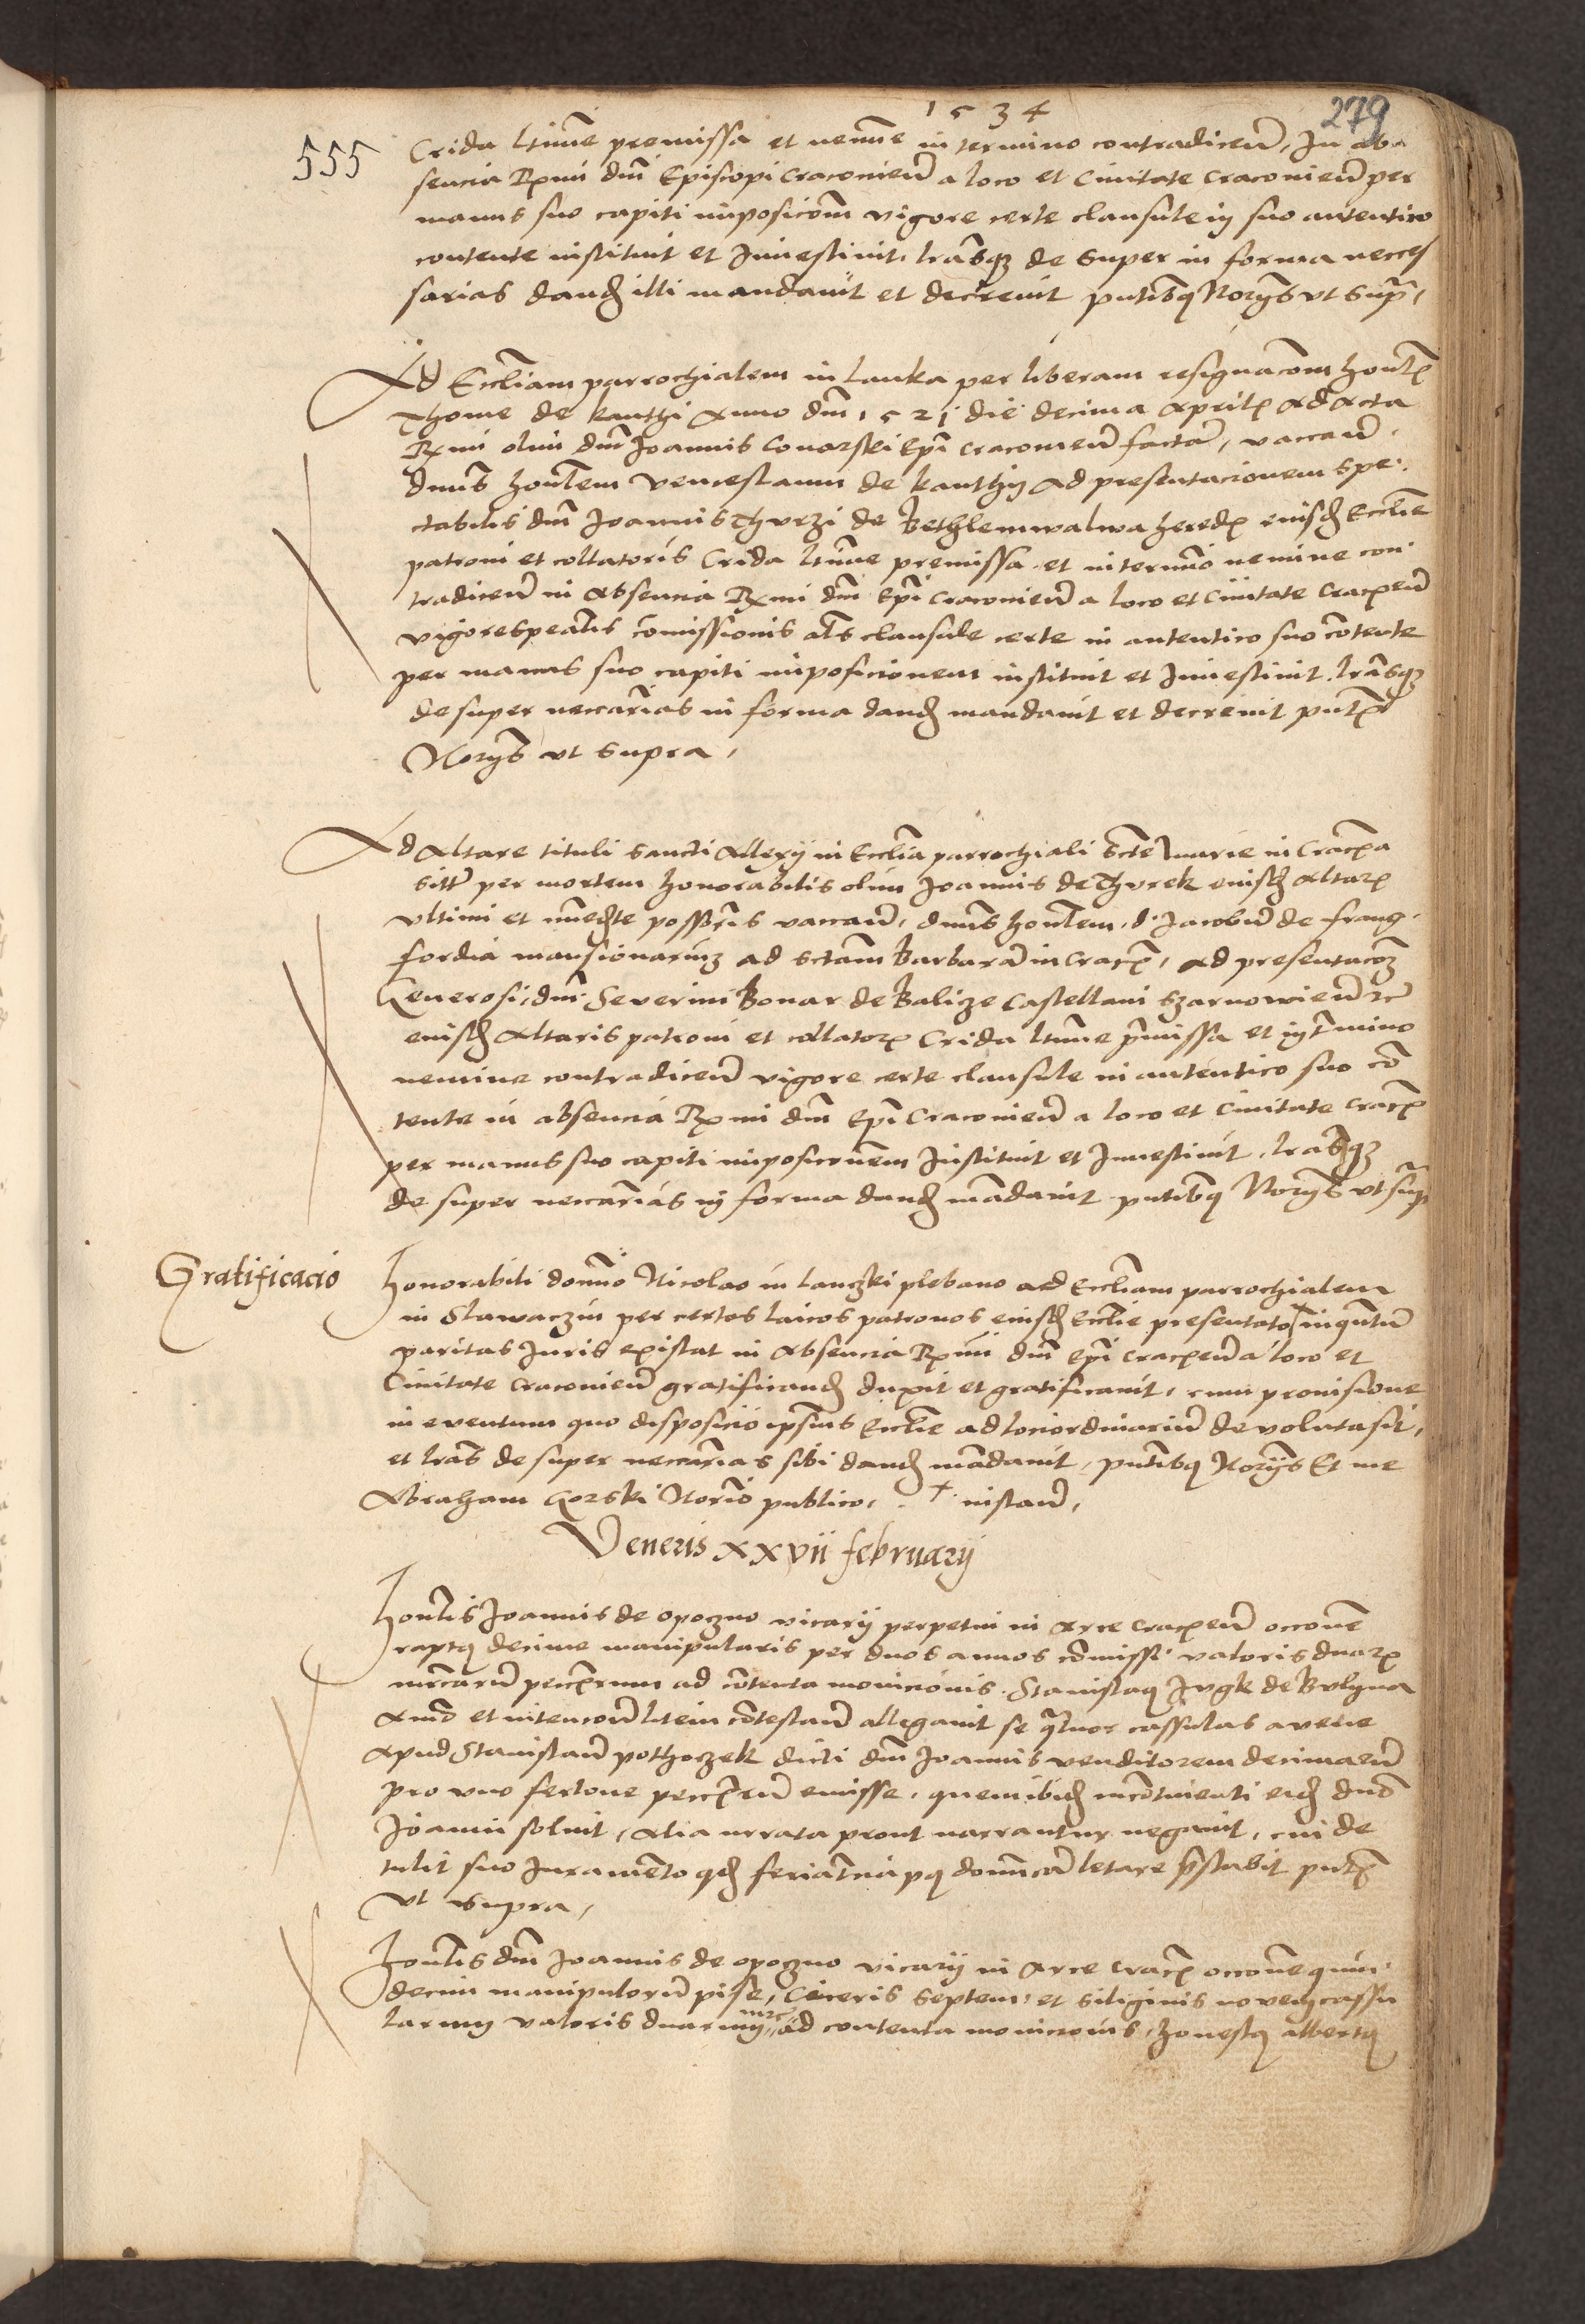 1534
279
555
Crida ltime premissa et nemine in termino contradicen, In ab
sencia Rxmi dni Episcopi Craconien a loco et Civitate Craconien per
manus suo capiti imposicom vigore certe clausule in suo autentico
contente instituit et Investivit, lrasqz de super in forma necces
sarias dand illi mandavit et decrevit pntibq Norys ut supra,
Ad Eccliam parrochialem in Lanka per liberam resignacom honlis
Thome de kanthi Anno dni 1521 die decima Aprilis Ad Acta
Rxmi olim dni Joannis Conarski Epi Craconien factam, vaccan,
dnus honlem Venceslaum de kanthy Ad presentacionem spe
ctabilis dni Joannis Thurzi de Bethlemwalwa heredis eiusd Ecclie
patroni et collatoris Crida ltime premissa et in termino nemine con
tradicen in Absencia Rxmi dni Epi Craconien a loco et Civitate Cracxen
vigore spealis comissionis als clausule certe in autentico suo contente
per manus suo capiti imposicionem instituit et Investivit, lrasqz
de super neccarias in forma dand mandavit et decrevit pntibq
Norys ut supra,
Ad Altare tituli sancti Allexy in Ecclia parrochiali Scte Marie in Cracxia
situm per mortem honorabilis olim Joannis de Thurek eiusd Altaris
ultimi et immediate possoris vaccan, dnus honlem d. Jacobum de frang
fordia mansionariuz ad sctam Barbaram in Cracxia, ad presentacoz
Generosi dni Severini Bonar de Balicze Castellani Szarnowien etc
eiusd Altaris patroni et collatoris Crida ltime premissa et in termino
nemine contradicen vigore certe clausule in autentico suo con
tente in absencia Rxmi dni Epi Craconien a loco et Civitate Cracx
per manus suo capiti imposicionem Instituit et Investivit, lrasqz
de super neccarias in forma dand mandavit pntibq Norys ut supra
Gratificacio
Honorabili domino Nicolao in Lanczki plebano ad Eccliam parrochialem
in Slawaczin per certos laicos patronos eiusd Ecclie presentato + inquntum
paritas Juris existat in Absencia Rxmi dni Epi Cracxien a loco et
Civitate Craconien gratificand duxit et gratificavit, cum provisione
in eventum quo disposicio ipsius Ecclie ad loci ordinarium devoluta sit,
et lras de super neccarias sibi dand mandavit, pntibq Norys Et me
Abraham Gorski Norio publico, + instan,
Veneris xxvii february
Honlis Joannis de opoczno vicarii perpetui in Arce Cracxien occone
raptq decime manipularis per duos annos comissi valoris duarx
mrcarum pecxrum ad contenta monicionis Stanislaq Jugk de Bulyna
Anno et intencoem litem contestan allegavit se qtuor cassulas avene
Apud Stanislaum pothoczek dicti dni Joannis venditorem decimarum
pro uno fertone pecxrum emisse, quem ibid incontinenti eid dno
Joanni solvit, Alia nrrata prout narrantur negavit, cui de
tulit suo Juramento qd feria tercia pq domincam letare prestabit pntx
ut supra,
Honlis dni Joannis de opoczno vicarii in Arce Cracx occone quin
decim manipulorum pise, Ciceris septem, et siliginis novem cassu
larum valoris duarum mrc ad contenta monicionis, honestq Albertq